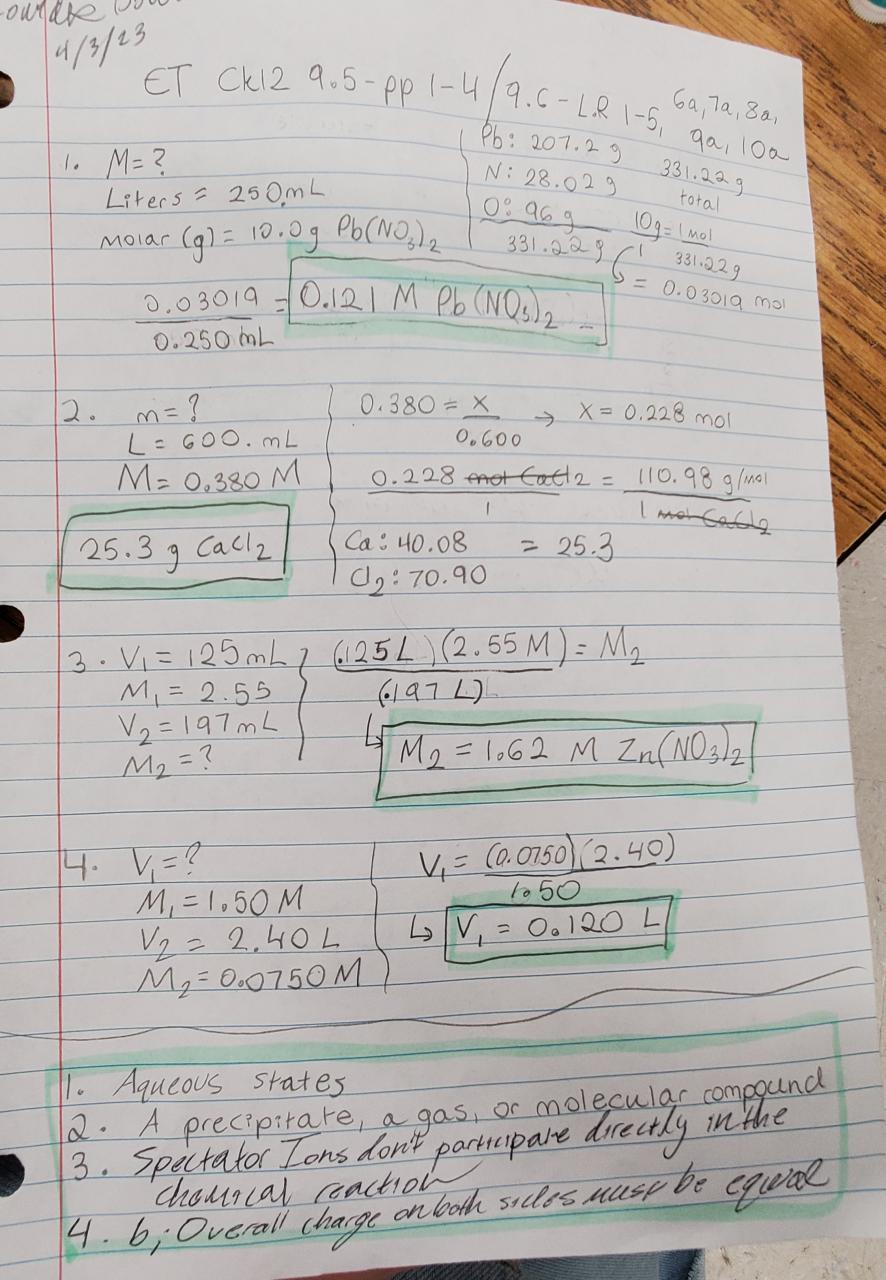 4/3/23
ET CK12 9.5-pp 1-4/9.6-L.R 1-5, 6a, 7a, 8a,
9a, 10a
1. M=?
Liters = 250.mL
Molar (g) = 10.0g Pb(NO3)2
Pb: 207.2 g
N: 28.02 g
O: 96 g
331.22g
331.22g
total
10g = 1 mol
1 331.22g
= 0.03019 mol
0.03019 = 0.121 M Pb(NO3)2
0.250 mL
2. m=?
L = 600. mL
M = 0.380 M
25.3 g CaCl2
0.380 = x → x = 0.228 mol
0.600
0.228 mol CaCl2 = 110.98 g/mol
1 1 mol CaCl2
Ca: 40.08 = 25.3
Cl2: 70.90
3. V1 = 125 mL
M1 = 2.55
V2 = 197 mL
M2 = ?
(.125 L)(2.55 M) = M2
(.197 L)
M2 = 1.62 M Zn(NO3)2
4. V1 = ?
M1 = 1.50 M
V2 = 2.40 L
M2 = 0.0750 M
V1 = (0.0750)(2.40)
1.50
V1 = 0.120 L
1. Aqueous states
2. A precipitate, a gas, or molecular compound
3. Spectator Ions don't participate directly in the
chemical reaction
4. b; Overall charge on both sides must be equal